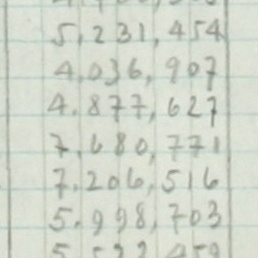 5,231,454
4.036,907
4.877,627
7.680,771
7.206,516
5.998,703